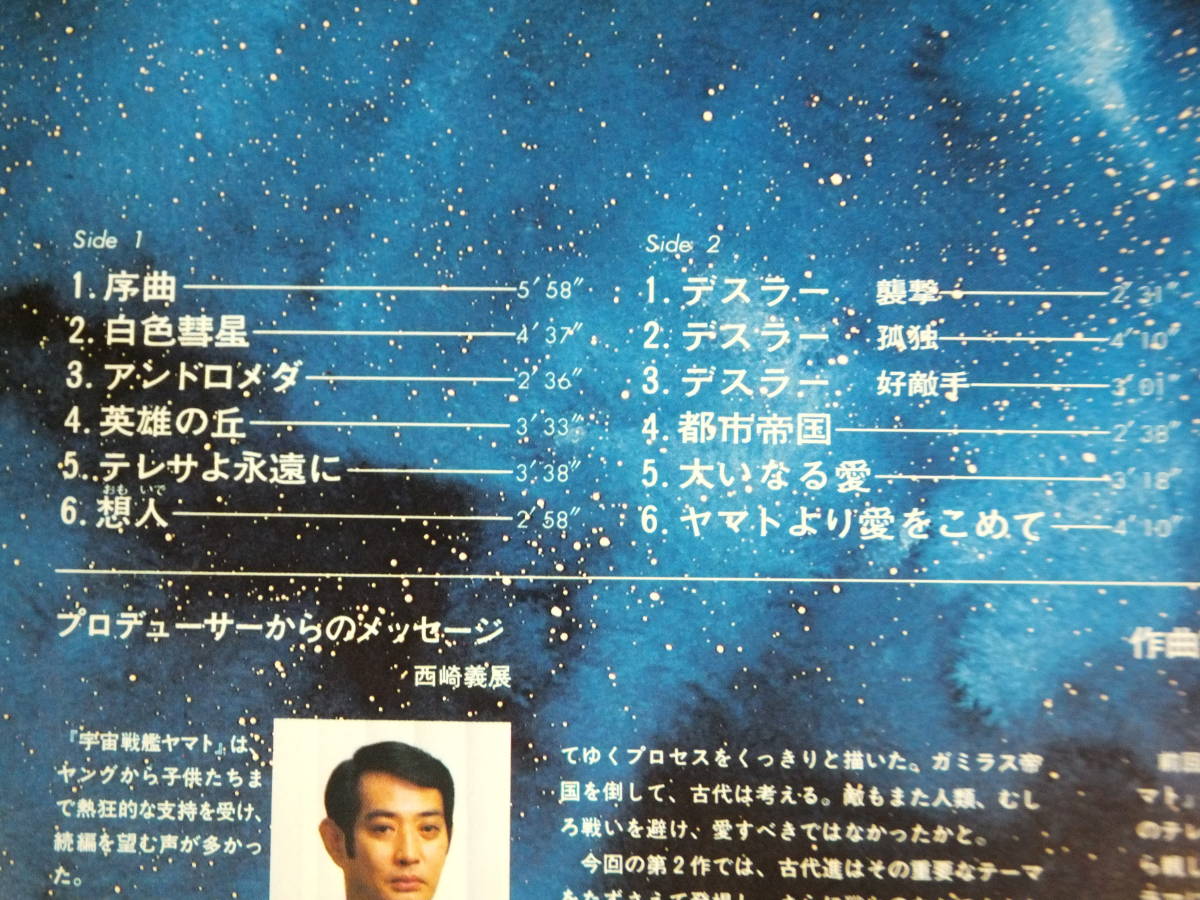 Side 1
1. 序曲 5′58″
2. 白色彗星 4′37″
3. アンドロメダ 2′36″
4. 英雄の丘 3′33″
5. テレサよ永遠に 3′38″
おも いで
6. 想人 2′58″
Side 2
1. デスラー 襲撃 2′31″
2. デスラー 孤独 4′10″
3. デスラー 好敵手 3′01″
4. 都市帝国 2′38″
5. 大いなる愛 3′18″
6. ヤマトより愛をこめて 4′10″
プロデューサーからのメッセージ
西崎義展
『宇宙戦艦ヤマト』は、
ヤングから子供たちま
で熱狂的な支持を受け、
続編を望む声が多かっ
た。
てゆくプロセスをくっきりと描いた。ガミラス帝
国を倒して、古代は考える。敵もまた人類、むし
ろ戦いを避け、愛すべきではなかったかと。
今回の第2作では、古代進はその重要なテーマ
作曲
前回
マト』
のテレ
ら親し